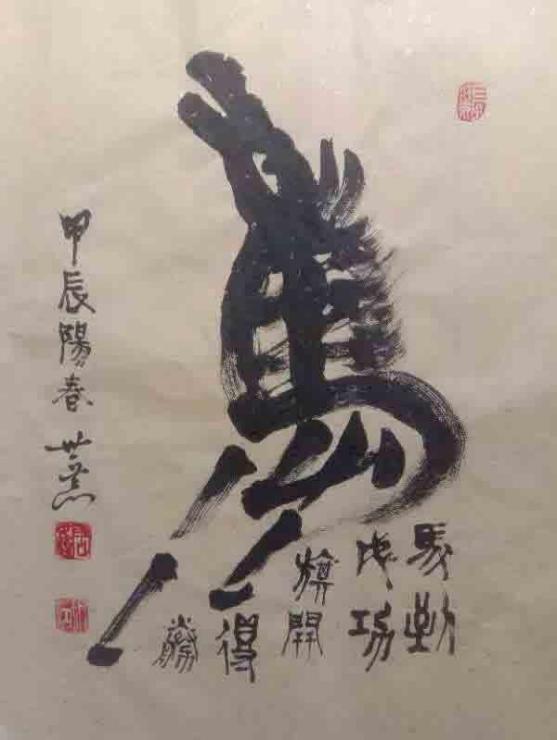 馬
馬到
成功
旗開
得
勝
甲辰陽春